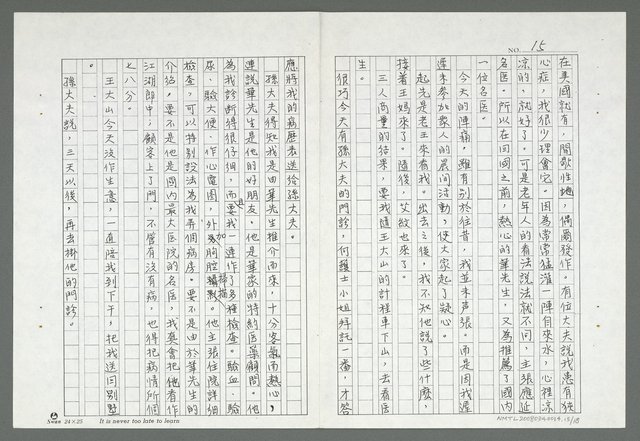 NO. 15
在美國就有，間歇性地，偶爾發作。有位大夫說我患有狹
心症，我很少理會它。因為常常猛灌一陣自來水，心裡涼
涼的，就好了。可是老年人的看法說法就不同，主張延
名医。所以在回國之前，熱心的華先生，又為推薦了國内
一位名医。
今天的陣痛，雖有別於往昔，我並未声張。而是因我遲
遲未参加眾人的晨间活動，使大家起了疑心。
起先是老王來看我。出去之後，我不知他說了些什麼，
接着王媽來了。隨後，艾紋也來了。
三人商量的结果，要我随王大山的計程車下山，去看医
生。
很巧今天有孫大夫的門診，何護士小姐拜託一番，才答
應將我的病歷表送给孫大夫。
孫大夫得知我是由華先生推介而來，十分客氣而熱心，
連說華先生是他的好朋友。他是華家的特约医藥顧問。他
為我診断得很仔細，而且要我一連作了多種檢查。驗血、驗
尿、驗大便、作心電图，外加為胸腔掃描。他主張住院詳細
检查，可以特別設法為我弄個病房。要不是由於華先生的
介绍，要不是他是國内最大医院的名医，我真會把他看作
江湖郎中，顧客上了門，不管有沒有病，也得把病情所個
七八分。
王大山今天沒作生意，一直陪我到下午，把我送回別墅
。
孫大夫說，三天以後，再去掛他的門診。
24×25 It is never too late to learn
NMTL20080240014.15/18